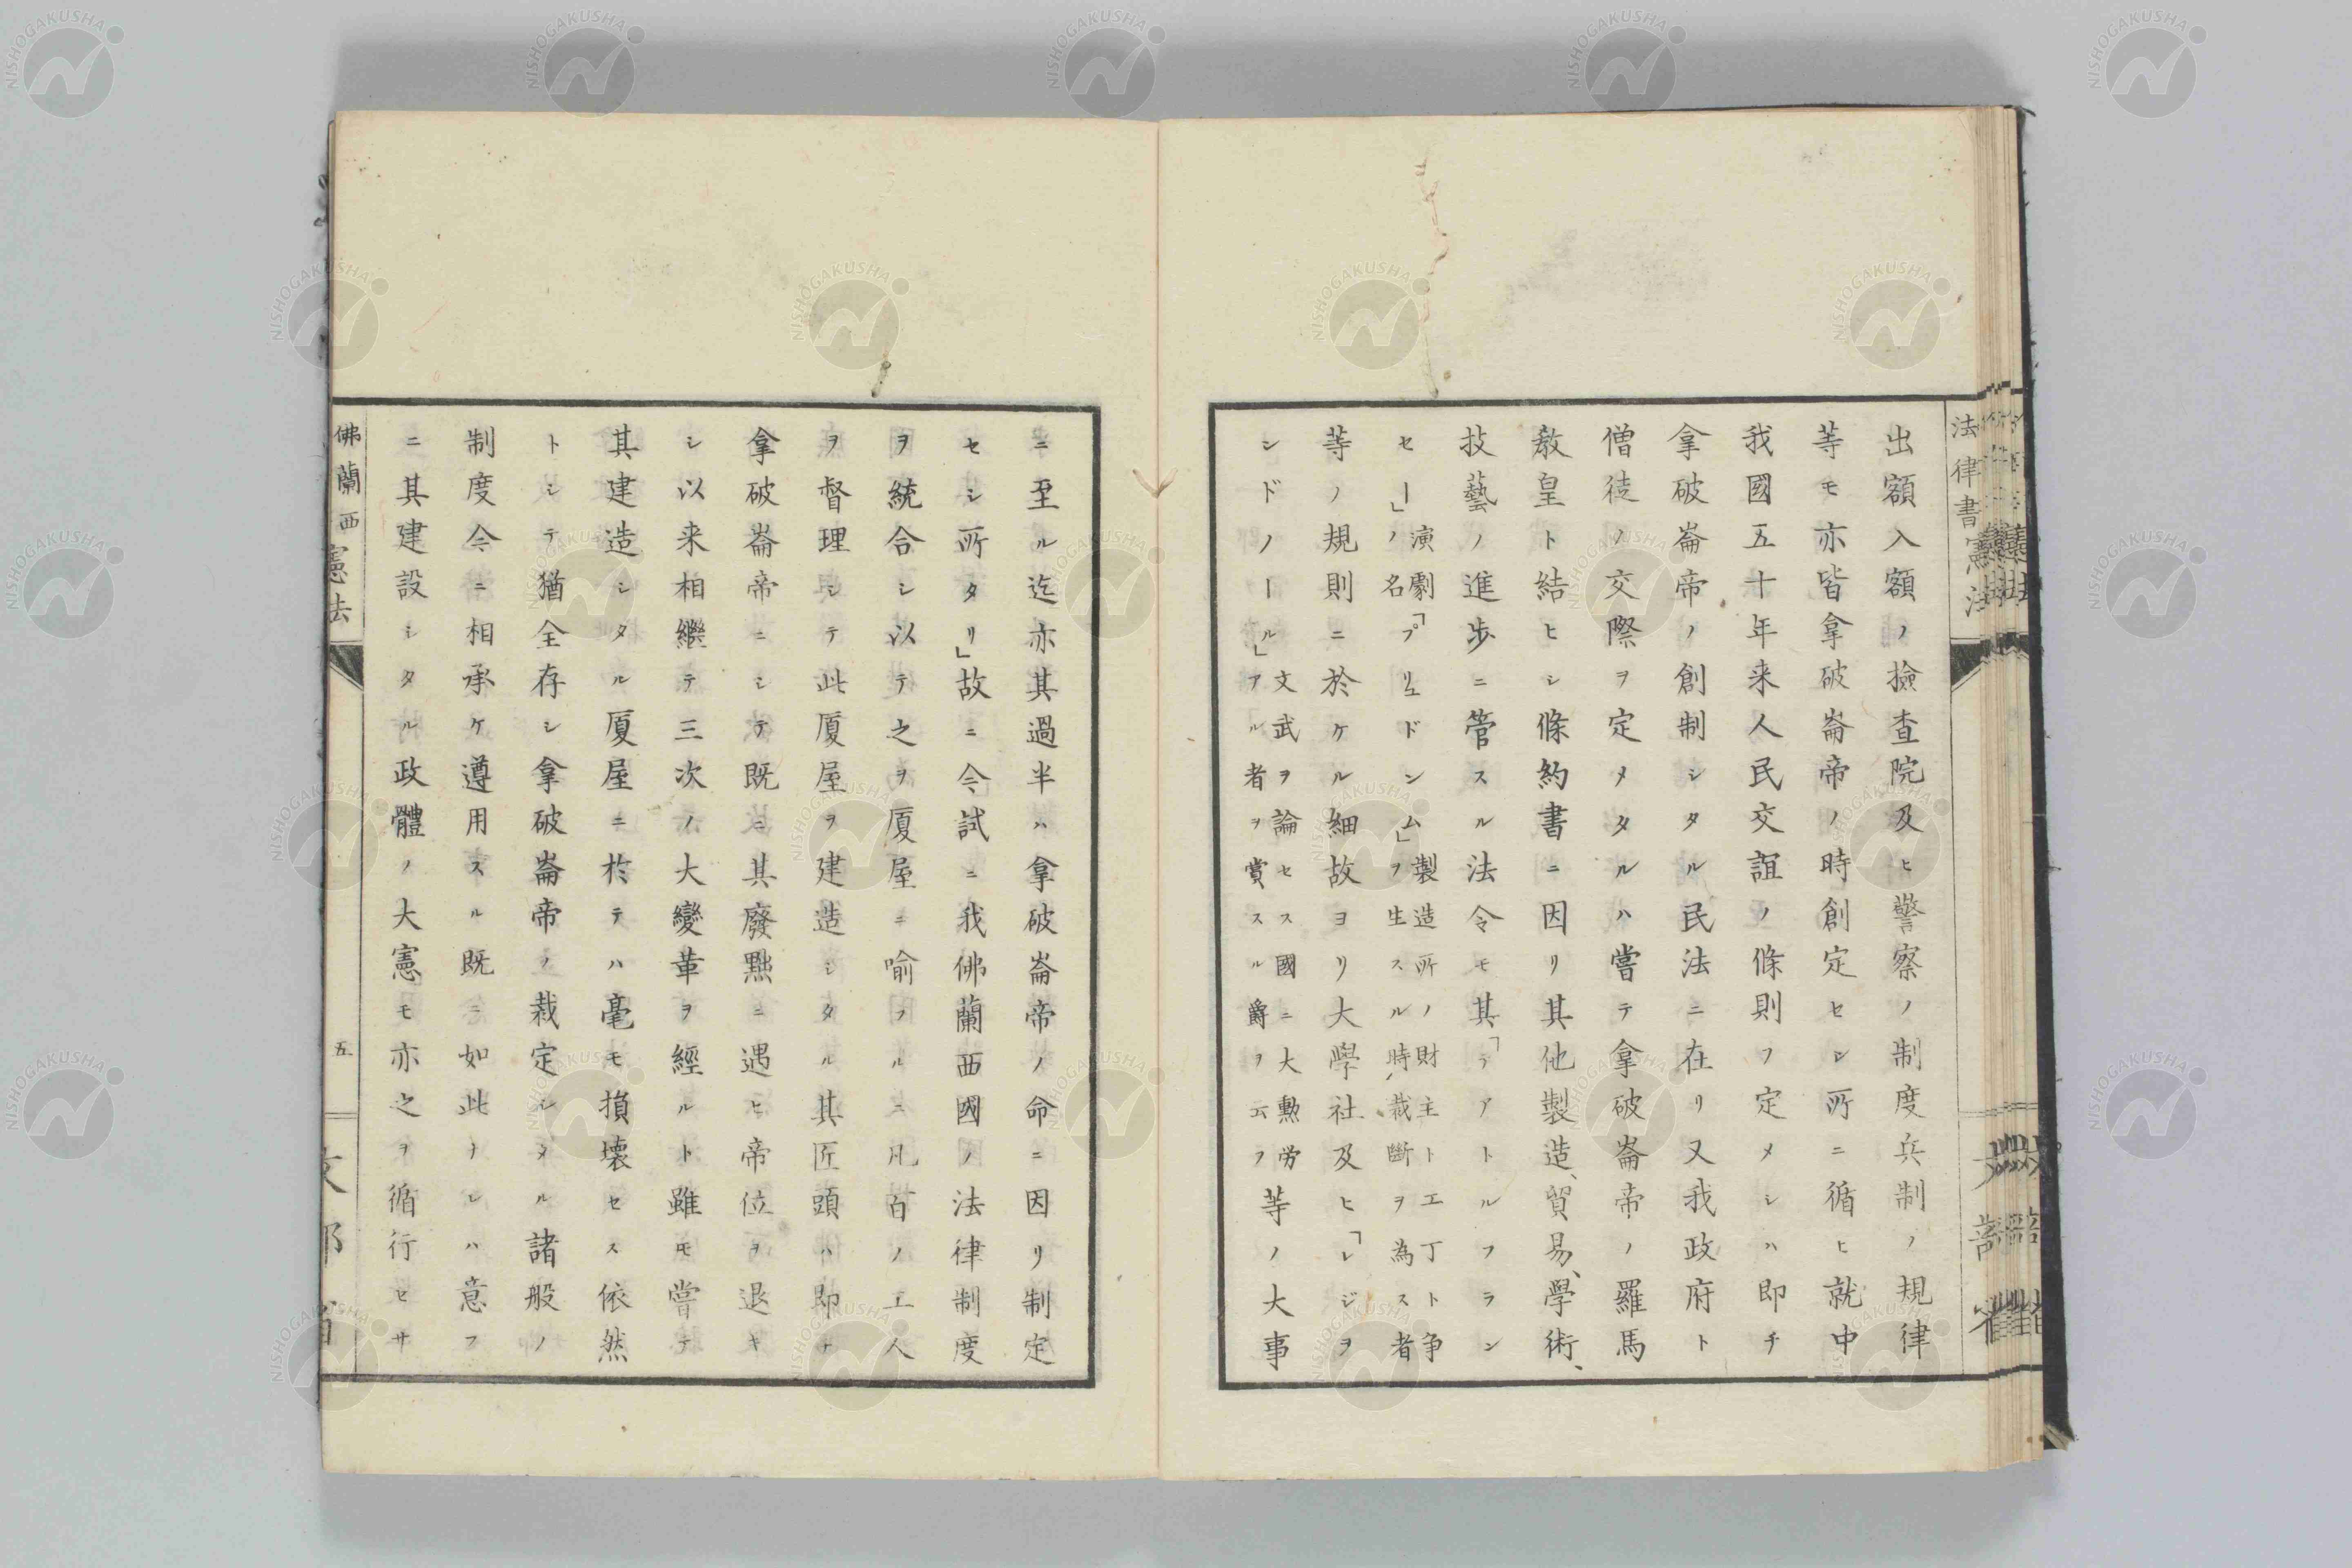 法律書憲法
出額入額ノ撿査院及ヒ警察ノ制度兵制ノ規律
等モ亦皆拿破崙帝ノ時創定セシ所ニ循ヒ就中
我國五十年来人民交誼ノ條則フ定メシハ即チ
拿破崙帝ノ創制シタル民法ニ在リ又我政府ト
僧徒ノ交際ヲ定メタルハ嘗テ拿破崙帝ノ羅馬
敎皇ト結ヒシ條約書ニ因リ其他製造、貿易、學術、
技藝ノ進歩ニ管スル法令モ其「テアトルフラン
セー」ノ名演劇「プリュドンム」ヲ生スル時裁斷ヲ為ス者製造所ノ財主ト工丁ト争
等ノ規則ニ於ケル細故ヨリ大學社及ヒ「レジヲ
ンドノール」文武ヲ論セス國ニ大勲労アル者ヲ賞スル爵ヲ云フ等ノ大事
ニ至ル迄亦其過半ハ拿破崙帝ノ命ニ因リ制定
セシ所タリ」故ニ今試ニ我佛蘭西國ノ法律制度
ヲ統合シ以テ之ヲ厦屋ニ喻フルニ凡百ノ工人
ヲ督理シテ此厦屋ヲ建造シタル其匠頭ハ即チ
拿破崙帝ニシテ既ニ其廢黜ニ遇ヒ帝位ヲ退キ
シ以来相繼テ三次ノ大變革ヲ經ルト雖モ嘗テ
其建造シタル厦屋ニ於テハ毫モ損壊セス依然
トシテ猶全存シ拿破崙帝ノ裁定シタル諸般ノ
制度今ニ相承ケ遵用スル既ニ如此ナレハ意フ
ニ其建設シタル政體ノ大憲モ亦之ヲ循行セサ
佛蘭西憲法
五
文部省
NISHOGAKUSHA